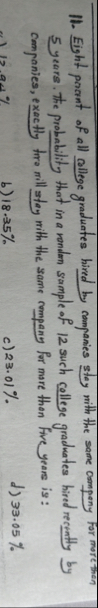 11. Eight percent of all college graduates hired by companies stay with the same company for more than
5 years. The probability that in a random sample of 12 such college graduates hired recently by
companies, exactly two will stay with the same company for more than five years is:
b) 18.35% c) 23.01% d) 33.05%